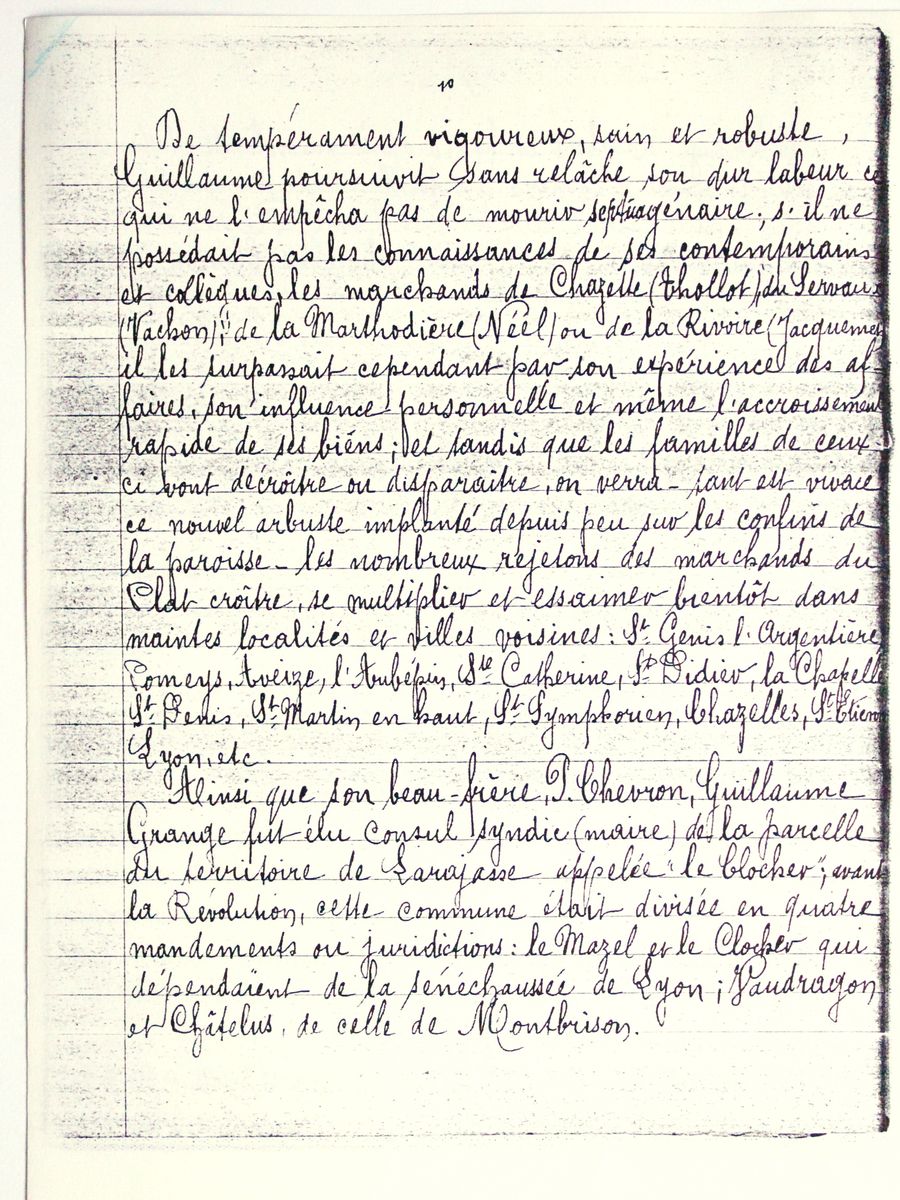 10
De tempérament vigoureux, sain et robuste,
Guillaume poursuivit sans relâche son dur labeur ce
qui ne l'empêcha pas de mourir septuagénaire ; s'il ne
possédait pas les connaissances de ses contemporains
et collègues, les marchands de Chazette (Thollot), du Servaux
(Vachon), de la Marthodière (Néel) ou de la Rivoire (Jacquemet
il les surpassait cependant par son expérience des af-
faires, son influence personnelle et même l'accroissement
rapide de ses biens ; et tandis que les familles de ceux-
ci vont décroître ou disparaitre, on verra - tant est vivace
ce nouvel arbuste implanté depuis peu sur les confins de
la paroisse - les nombreux rejetons des marchands du
Plat croître, se multiplier et essaimer bientôt dans
maintes localités et villes voisines : St Genis l'Argentière,
Pomeys, Aveize, l'Aubépin, Ste Catherine, St Didier, la Chapelle
St Denis, St Martin en haut, St Symphorien, Chazelles, St Etienne
Lyon, etc.
Ainsi que son beau-frère, P. Chevron, Guillaume
Grange fut élu consul syndic (maire) de la parcelle
du territoire de Larajasse appelée "le Clocher" ; avant
la Révolution, cette commune était divisée en quatre
mandements ou juridictions : le Mazel et le Clocher qui
dépendaient de la sénéchaussée de Lyon ; Vaudragon
et Châtelus, de celle de Montbrison.